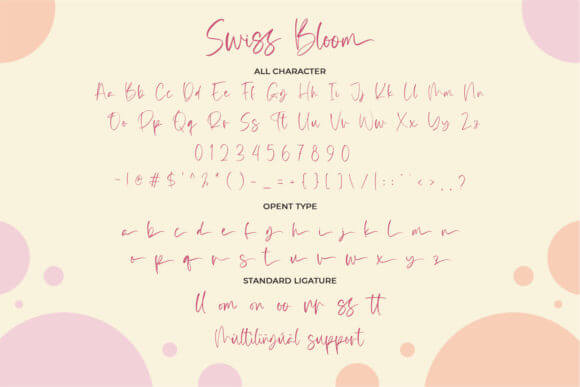 Swiss Bloom
ALL CHARACTER
Aa Bb Cc Dd Ee Ff Gg Hh Ii Jj Kk Ll Mm Nn
Oo Pp Qq Rr Ss Tt Uu Vv Ww Xx Yy Zz
0 1 2 3 4 5 6 7 8 9 0
~ ! @ # $ ' ^ % * ( ) - _ = + { } [ ] \ / | : ; ¨ ´ < > . , ?
OPENT TYPE
a b c d e f g h i j k l m n
o p q r s t u v w x y z
STANDARD LIGATURE
ll om on oo rr ss tt
Multilingual support